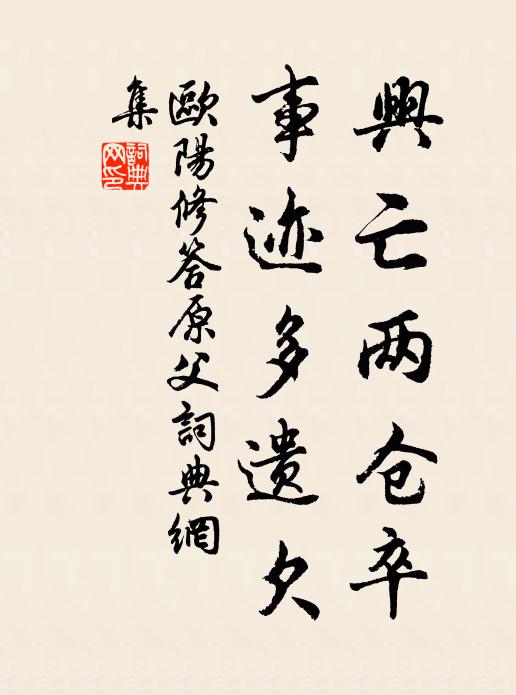 興亡两仓卒
事迹多遗欠
歐陽修答原父詞典網
集
詞典网印